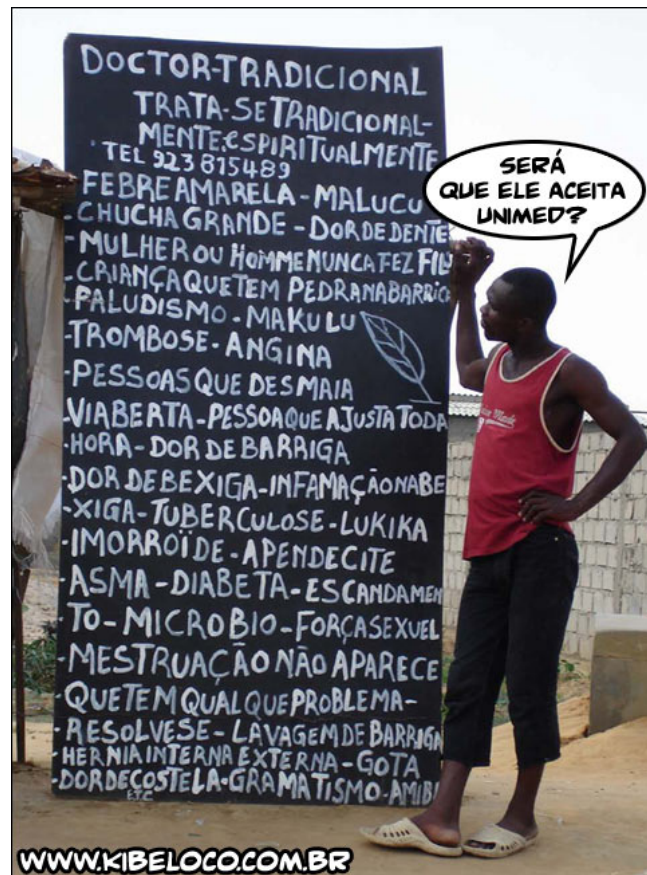 DOCTOR-TRADICIONAL
TRATA-SE TRADICIONAL-
MENTE.ESPIRITUALMENTE
TEL 923 815489
-FEBRE AMARELA - MALUCU
-CHUCHA GRANDE - DOR DE DENTE
-MULHER OU HOMME NUNCA FEZ FIL
-CRIANÇA QUE TEM PEDRA NA BARRIG
-PALUDISMO - MAKULU
-TROMBOSE - ANGINA
-PESSOAS QUE DESMAIA
-VIA BERTA - PESSOA QUE AJUSTA TODA
-HORA - DOR DE BARRIGA
-DOR DE BEXIGA - INFAMAÇÃO NA BE
-XIGA - TUBERCULOSE - LUKIKA
-IMORROÏDE - APENDECITE
-ASMA - DIABETA - ESCANDAMEN
-TO - MICROBIO - FORÇA SEXUEL
-MESTRUAÇÃO NÃO APARECE
-QUE TEM QUALQUE PROBLEMA -
-RESOLVESE - LAVAGEM DE BARRIGA
-HERNIA INTERNA EXTERNA - GOTA
-DOR DE COSTELA - GRAMATISMO - AMIBI
ETC
SERÁ
QUE ELE ACEITA
UNIMED?
WWW.KIBELOCO.COM.BR